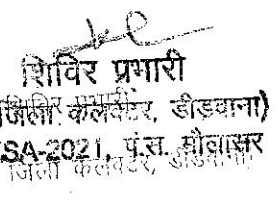 शिविर प्रभारी
जिला कलेक्टर, डीडवाना)
SA-2021, पं.स. मौलासर
जिला कलेक्टर, डीडवाना